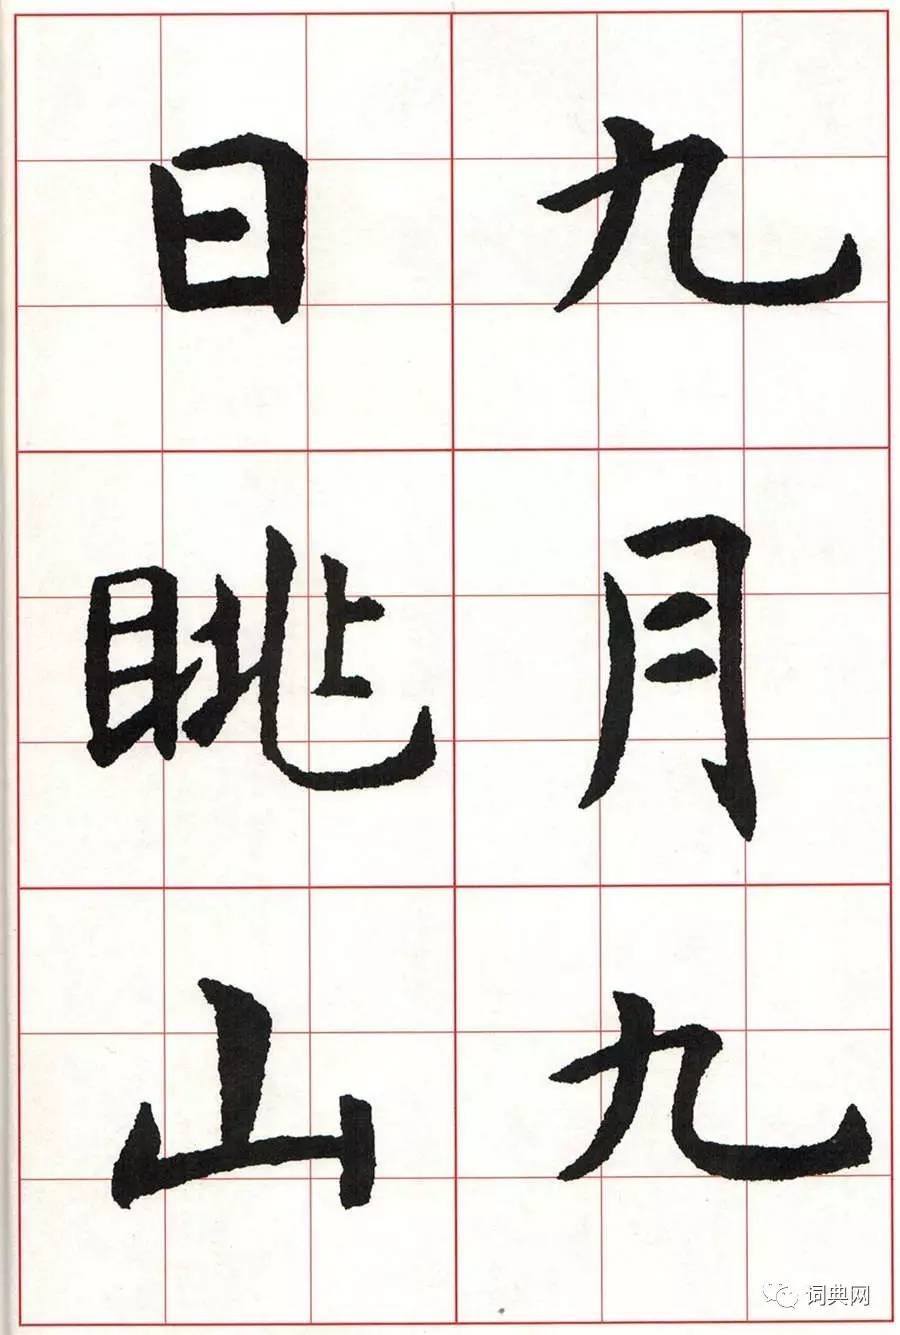 九月九
日眺山
词典网